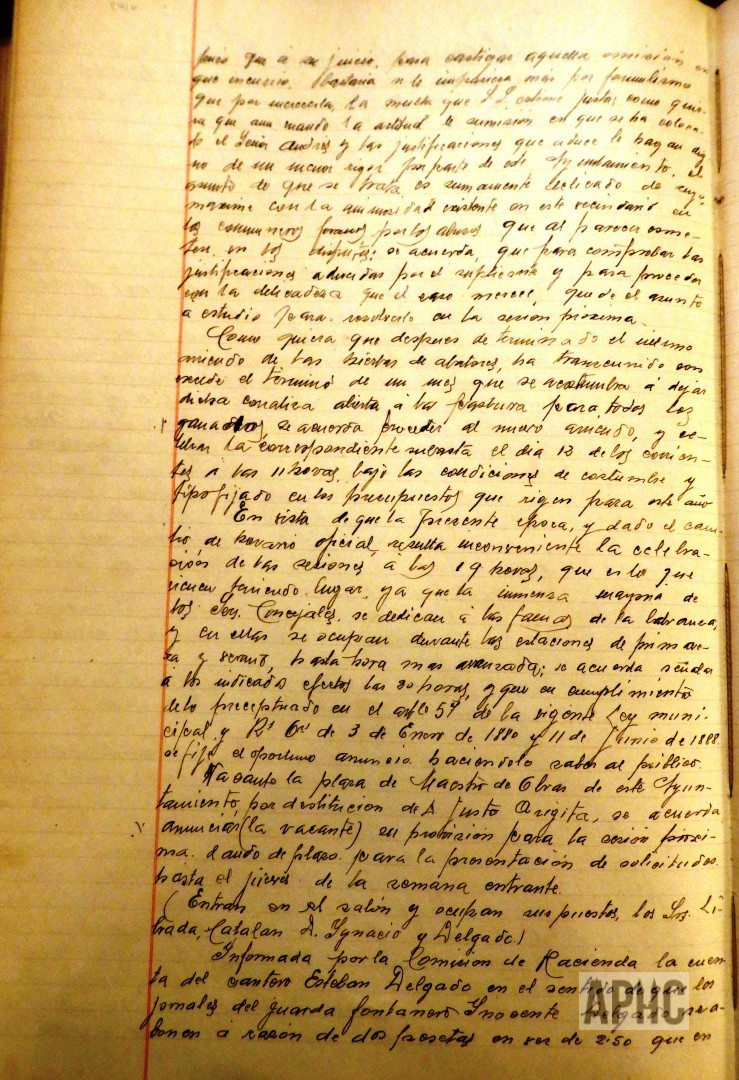 que á su juicio, para castigar aquella omisión en
que incurrió, bastaria se le impusiera mas por formulismo
que por merecerla, la multa que S.S. estime justa; como quie-
ra que aun cuando la actitud de sumision en que se ha coloca-
do el Señor Andrés y las justificaciones que aduce le hagan dig
no de un menor rigor por parte de este Ayuntamiento, el
asunto de que se trata es sumamente delicado de suyo,
maxime con la animosidad existente en este vecindario en
los comuneros foranos por los abusos que al parecer come-
ten en los ; se acuerda, que para comprobar las
justificaciones aducidas por el suplicante y para proceder
con la delicadeza que el caso merece, quede el asunto
a estudio para resolverlo en la sesion proxima.
Como quiera que despues de terminado el ultimo
arriendo de las hierbas de abalores, ha transcurrido con
exceso el término de un mes que se acostumbra á dejar
dicha corraliza abierta á la pastura para todos los
ganados se acuerda proceder al nuevo arriendo, y ce-
lebrar la correspondiente subasta el dia 12 de los corrien-
tes á las 11 horas, bajo las condiciones de costumbre y
tipo fijado en los presupuestos que rigen para este año
En vista de que la presente epoca, y dado el cam-
bio de horario oficial, resulta inconveniente la celebra-
ción de las sesiones á las 19 horas, que es lo que
viene teniendo lugar, ya que la inmensa mayoria de
los Sres. Concejales, se dedican á las faenas de la labranza,
y en ellas se ocupan durante las estaciones de primave-
ra y verano, hasta hora mas avanzada; se acuerda señalar
á los indicados efectos las 20 horas, y que en cumplimiento
de lo preceptuado en el artlo 57 de la vigente Ley muni-
cipal y Rs Or de 3 de Enero de 1880 y 11 de Junio de 1888
se fije el oportuno anuncio haciendolo saber al público.
Vacante la plaza de Maestro de Obras de este Ayun-
tamiento, por destitucion de D. Justo Arigita, se acuerda
anunciar (la vacante) su provisión para la sesión próxi-
ma, dando de plazo para la presentación de solicitudes
hasta el jueves de la semana entrante.
(Entran en el salón y ocupan sus puestos, los Srs. Li-
brada, Catalan D. Ygnacio y Delgado.)
Informada por la Comision de Hacienda la cuen-
ta del cantero Esteban Delgado en el sentido de que los
jornales del guarda fontanero Inocente Delgado se a-
bonen a razón de dos pesetas en vez de 2'50 que en
APHC